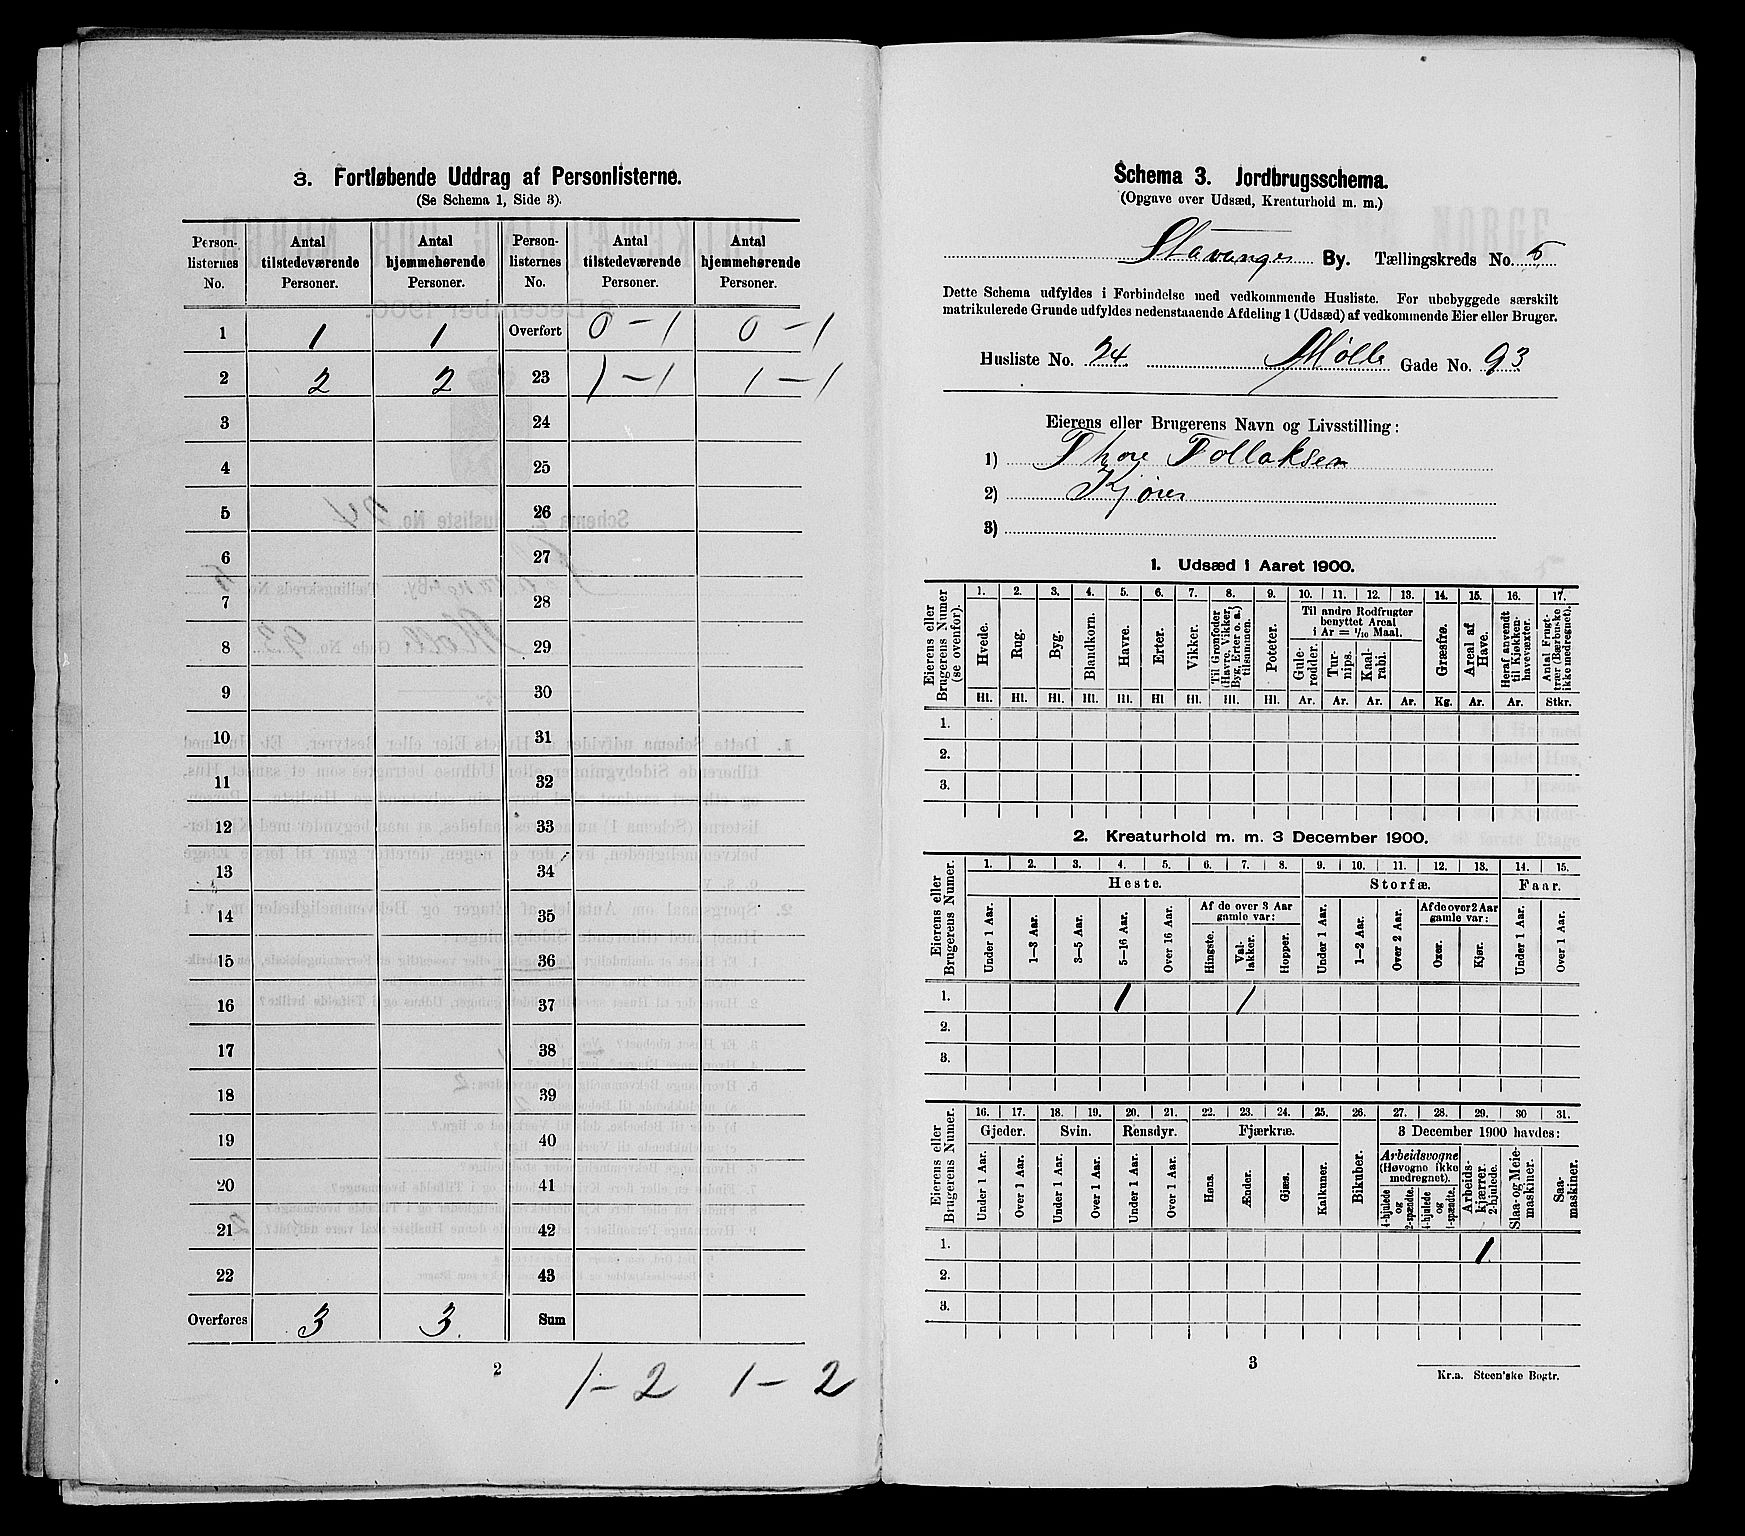 3. Fortløbende Uddrag af Personlisterne.
(Se Schema 1, Side 3).
Person-listernes No. Antal tilstedeværende Personer. Antal hjemmehørende Personer. Person-listernes No. Antal tilstedeværende Personer. Antal hjemmehørende Personer.
1 1 1 Overført 0-1 0-1
2 2 2 23 1-1 1-1
3 24
4 25
5 26
6 27
7 28
8 29
9 30
10 31
11 32
12 33
13 34
14 35
15 36
16 37
17 38
18 39
19 40
20 41
21 42
22 43
Overføres 3 3. Sum
1-2 1-2
2
Schema 3. Jordbrugsschema.
(Opgave over Udsæd, Kreaturhold m. m.)
Stavanger By. Tællingskreds No. 5
Dette Schema udfyldes i Forbindelse med vedkommende Husliste. For ubebyggede særskilt
matrikulerede Grunde udfyldes nedenstaaende Afdeling 1 (Udsæd) af vedkommende Eier eller Bruger.
Husliste No. 24. Mølle Gade No. 93
Eierens eller Brugerens Navn og Livsstilling:
1) Thore Tollaksen
2) Kjører
3)
1. Udsæd i Aaret 1900.
Eierens eller Brugerens Numer (se ovenfor).
1. 2. 3. 4. 5. 6. 7. 8. 9. 10. 11. 12. 13. 14. 15. 16. 17.
Hvede. Rug. Byg. Blandkorn. Havre. Erter. Vikker. Til Grønfoder (Havre, Vikker, Byg, Erter o. a.) tilsammen. Poteter. Til andre Rodfrugter benyttet Areal i Ar = 1/10 Maal. Gule-rødder. Tur-nips. Kaal-rabi. Græsfrø. Areal af Have. Heraf anvendt til Kjøkken-havevæxter. Antal Frugt-trær (Bærbuske ikke medregnet).
Hl. Hl. Hl. Hl. Hl. Hl. Hl. Hl. Hl. Ar. Ar. Ar. Ar. Kg. Ar. Ar. Stkr.
1.
2.
3.
2. Kreaturhold m. m. 3 December 1900.
Eierens eller Brugerens Numer.
1. 2. 3. 4. 5. 6. 7. 8. 9. 10. 11. 12. 13. 14. 15.
Heste. Storfæ. Faar.
Under 1 Aar. 1—3 Aar. 3—5 Aar. 5—16 Aar. Over 16 Aar. Af de over 3 Aar gamle var: Hingste. Val-lakker. Hopper. Under 1 Aar. 1—2 Aar. Over 2 Aar. Af de over 2 Aar gamle var: Oxer. Kjør. Under 1 Aar. Over 1 Aar.
1. 1 1
2.
3.
Eierens eller Brugerens Numer.
16. 17. 18. 19. 20. 21. 22. 23. 24. 25. 26. 27. 28. 29. 30 31.
Gjeder. Svin. Rensdyr. Fjærkræ. Bikuber. 3 December 1900 havdes:
Under 1 Aar. Over 1 Aar. Under 1 Aar. Over 1 Aar. Under 1 Aar. Over 1 Aar. Høns. Ænder. Gjæs. Kalkuner. Arbeidsvogne (Høvogne ikke medregnet). 4-hjulede og 2-spændte. 4-hjulede og 1-spændte. Arbeids-kjærrer. 2-hjulede. Slaa- og Meie-maskiner. Saa-maskiner.
1. 1.
2.
3.
3
Kr.a. Steen'ske Bogtr.